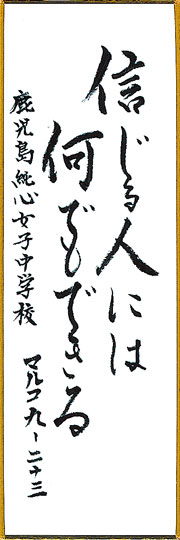 信じる人には
何でもできる
鹿児島純心女子中学校
マルコ九-二十三